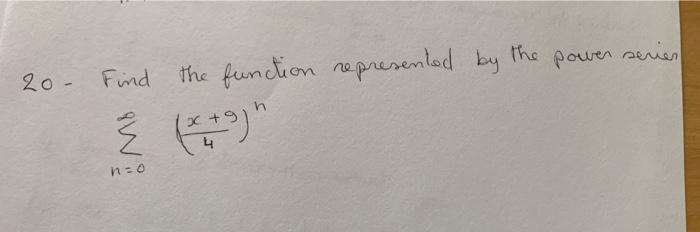 20- Find the function represented by the power series
∞
Σ ((x+9)/4)^n
n=0